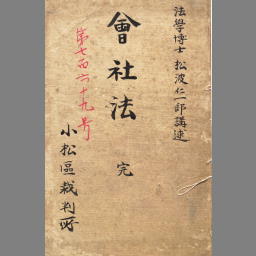 法學博士 松波仁一郎講述
會社法 完
第七百六十九号
小松區裁判所